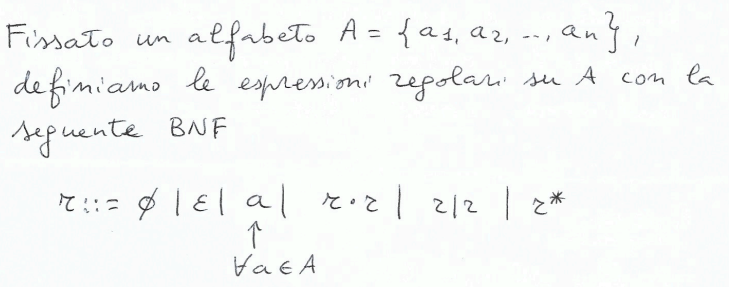 Fissato un alfabeto A = {a1, a2, .., an},
definiamo le espressioni regolari su A con la
seguente BNF
r::= ∅ | ε | a | r·r | r|r | r*
↑
∀a ∈ A